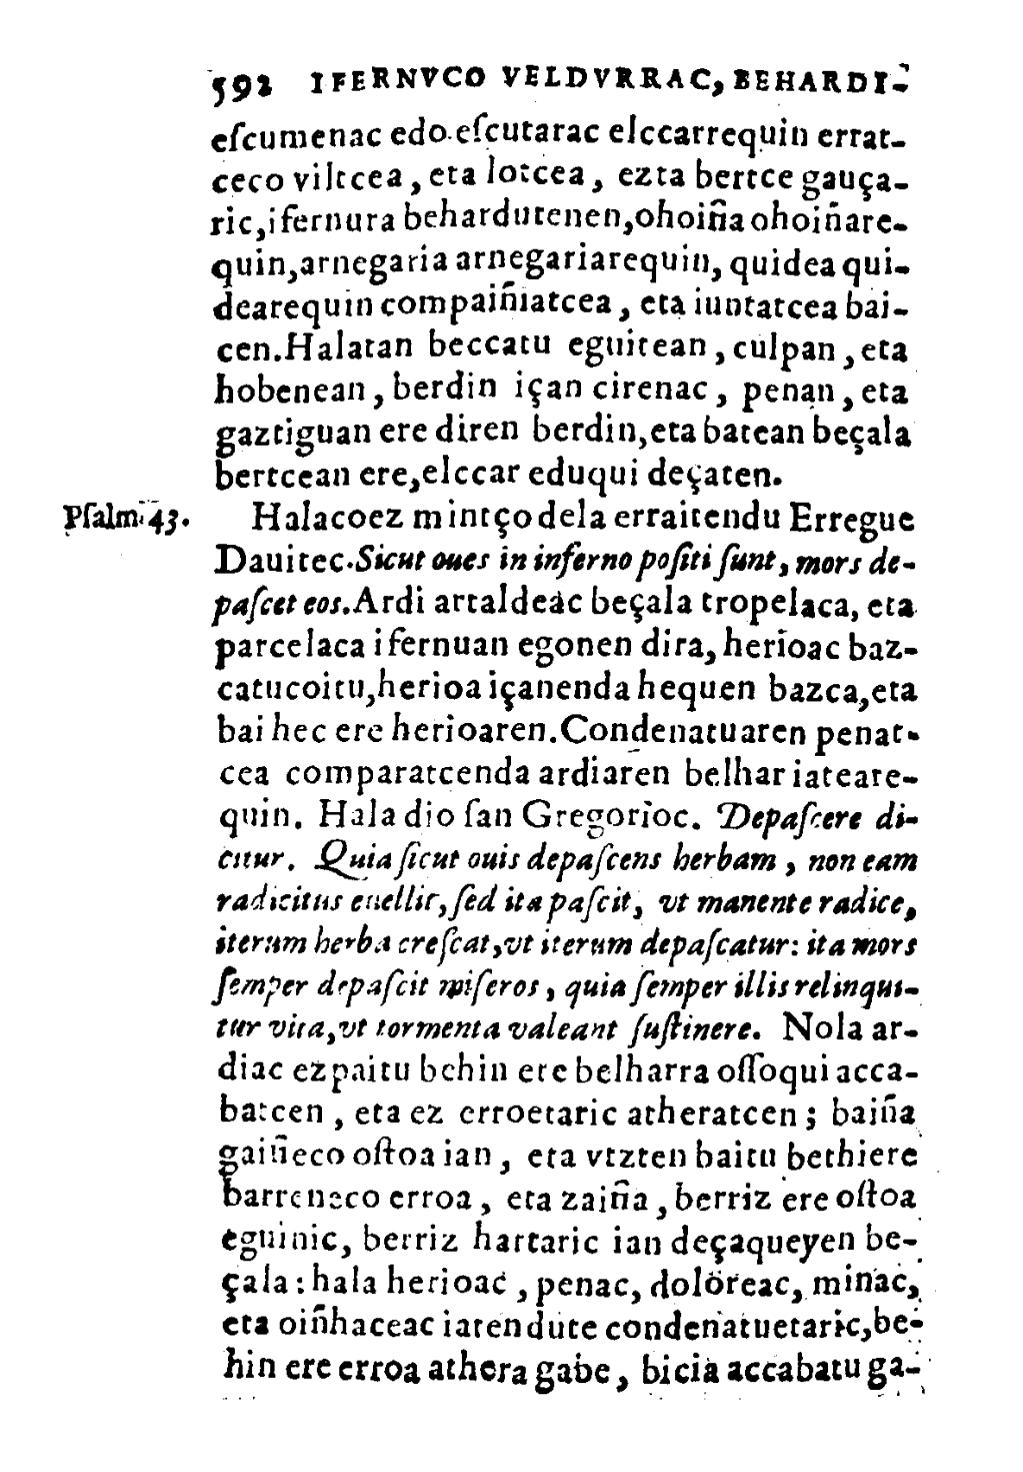 592 IFERNVCO VELDVRRAC, BEHARDI-
eſcumenac edo eſcutarac elccarrequin errat-
ceco viltcea, eta lotcea, ezta bertce gauça-
ric, ifernura behardutenen, ohoiña ohoiñare-
quin, arnegaria arnegariarequin, quidea qui-
dearequin compaiñiatcea, eta iuntatcea bai-
cen. Halatan beccatu eguitean, culpan, eta
hobenean, berdin içan cirenac, penan, eta
gaztiguan ere diren berdin, eta batean beçala
bertcean ere, elccar eduqui deçaten.
Pſalm. 43.
Halacoez mintço dela erraitendu Erregue
Dauitec. Sicut oues in inferno poſiti ſunt, mors de-
paſcet eos. Ardi artaldeac beçala tropelaca, eta
parcelaca ifernuan egonen dira, herioac baz-
catucoitu, herioa içanenda hequen bazca, eta
bai hec ere herioaren. Condenatuaren penat-
cea comparatcenda ardiaren belhar iateare-
quin. Hala dio ſan Gregorioc. Depaſcere di-
citur. Quia ſicut ouis depaſcens herbam, non eam
radicitus euellit, ſed ita paſcit, vt manente radice,
iterum herba creſcat, vt iterum depaſcatur: ita mors
ſemper depaſcit miſeros, quia ſemper illis relinqui-
tur vita, vt tormenta valeant ſuſtinere. Nola ar-
diac ezpaitu behin ere belharra oſſoqui acca-
batcen, eta ez erroetaric atheratcen; baiña
gaiñeco oſtoa ian, eta vtzten baitu bethiere
barreneco erroa, eta zaiña, berriz ere oſtoa
eguinic, berriz hartaric ian deçaqueyen be-
çala: hala herioac, penac, doloreac, minac,
eta oiñhaceac iatendute condenatuetaric, be-
hin ere erroa athera gabe, bicia accabatu ga-